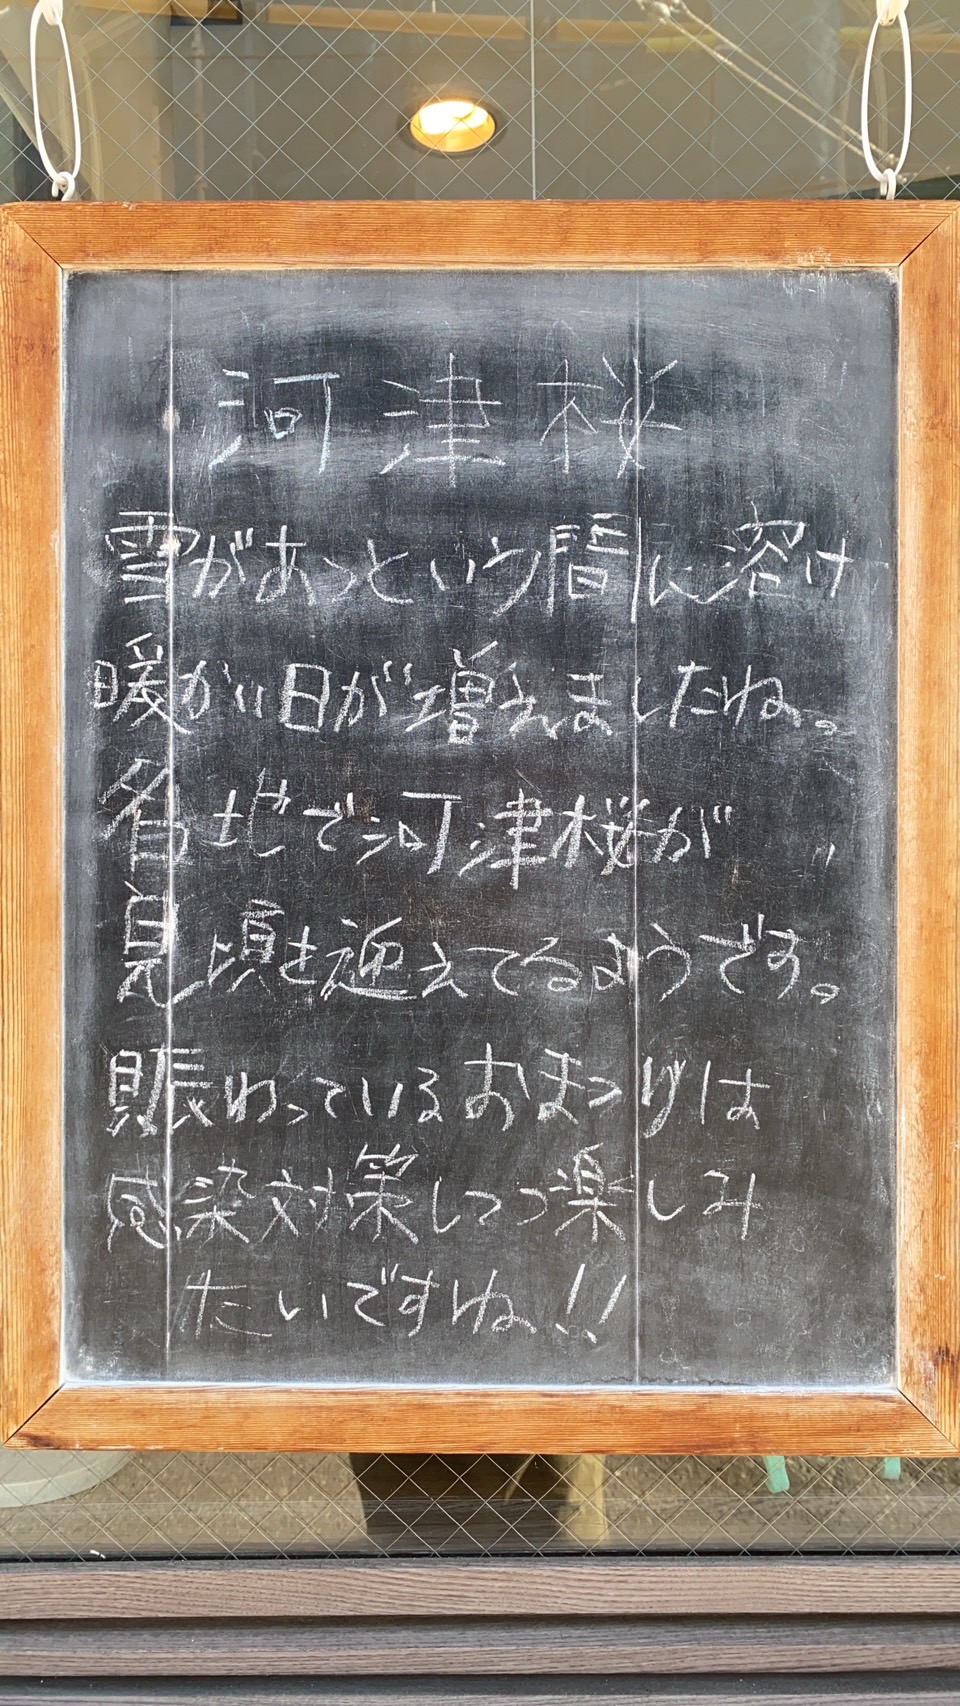 河津桜
雪があっという間に溶け
暖かい日が増えましたね。
各地で河津桜が
見頃を迎えてるようです。
賑わっているおまつりは
感染対策しつつ楽しみ
たいですね!!